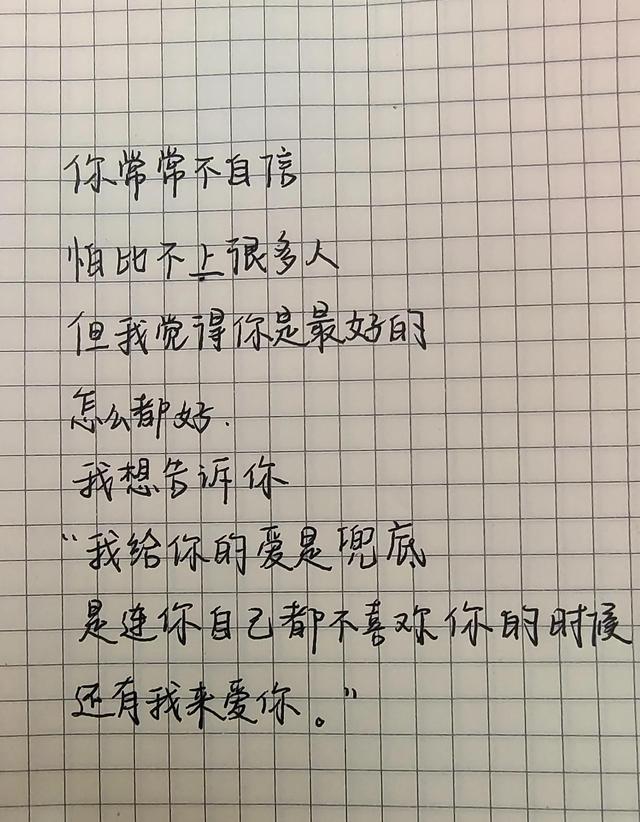 你常常不自信
怕比不上很多人
但我觉得你是最好的
怎么都好.
我想告诉你
“我给你的爱是兜底
是连你自己都不喜欢你的时候
还有我来爱你。”